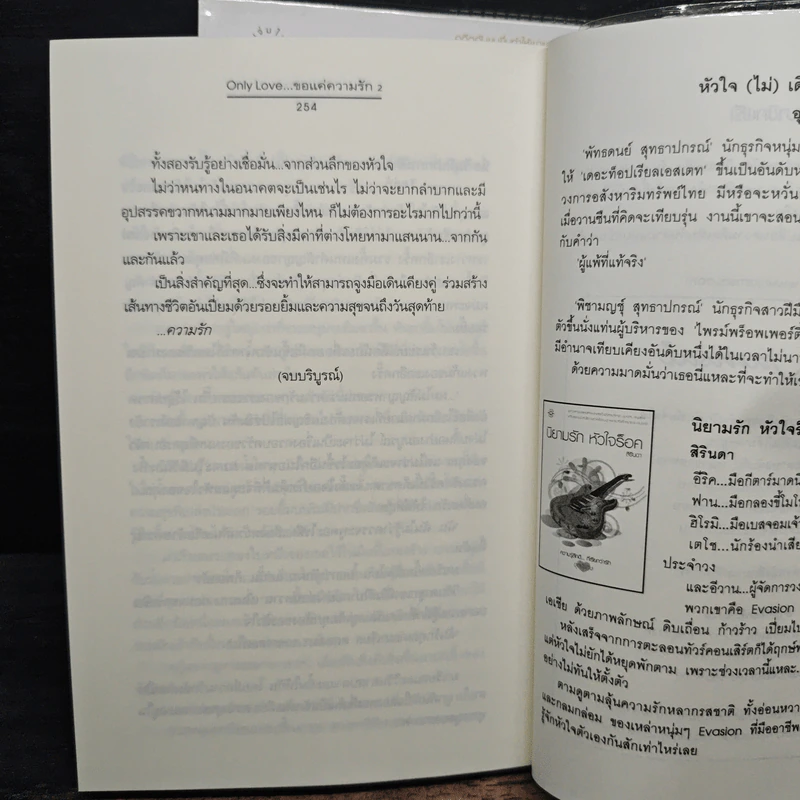 Only Love...ขอแค่ความรัก 2
254
ทั้งสองรับรู้อย่างเชื่อมั่น...จากส่วนลึกของหัวใจ
ไม่ว่าหนทางในอนาคตจะเป็นเช่นไร ไม่ว่าจะยากลำบากและมี
อุปสรรคขวากหนามมากมายเพียงไหน ก็ไม่ต้องการอะไรมากไปกว่านี้
เพราะเขาและเธอได้รับสิ่งมีค่าที่ต่างโหยหามาแสนนาน...จากกัน
และกันแล้ว
เป็นสิ่งสำคัญที่สุด...ซึ่งจะทำให้สามารถจูงมือเดินเคียงคู่ ร่วมสร้าง
เส้นทางชีวิตอันเปี่ยมด้วยรอยยิ้มและความสุขจนถึงวันสุดท้าย
...ความรัก
(จบบริบูรณ์)
หัวใจ (ไม่)
'พัทธดนย์ สุทธาปกรณ์' นักธุรกิจหนุ่ม
ให้ 'เดอะท็อปเรียลเอสเตท' ขึ้นเป็นอันดับ
วงการอสังหาริมทรัพย์ไทย มีหรือจะหวั่น
เมื่อวานซืนที่คิดจะเทียบรุ่น งานนี้เขาจะสอน
กับคำว่า
'ผู้แพ้ที่แท้จริง'
'พิชามญชุ์ สุทธาปกรณ์' นักธุรกิจสาวฝีมื
ตัวขึ้นนั่งแท่นผู้บริหารของ ไพรม์พร็อพเพอร์ตี
มีอำนาจเทียบเคียงอันดับหนึ่งได้ในเวลาไม่นา
ด้วยความมาดมั่นว่าเธอนี่แหละที่จะทำให้
นิยามรัก หัวใจร็อค
สิรินดา
นิยามรัก หัวใจร็
สิรินดา
อีริค...มือกีตาร์มาดนิ
ฟาน...มือกลองขี้โมโ
ฮิโรมิ...มือเบสจอมเจ้า
เตโช...นักร้องนำเสีย
ประจำวง
และอีวาน...ผู้จัดการวง
พวกเขาคือ Evasion
เอเชีย ด้วยภาพลักษณ์ ดิบเถื่อน ก้าวร้าว เปี่ยมไป
หลังเสร็จจากการตะลอนทัวร์คอนเสิร์ตก็ได้ฤกษ์
แต่หัวใจไม่ยักได้หยุดพักตาม เพราะช่วงเวลานี้แหละ...
อย่างไม่ทันให้ตั้งตัว
ตามดูตามลุ้นความรักหลากรสชาติ ทั้งอ่อนหวา
และกลมกล่อม ของเหล่าหนุ่มๆ Evasion ที่มืออาชีพ
รู้จักหัวใจตัวเองกันสักเท่าไหร่เลย